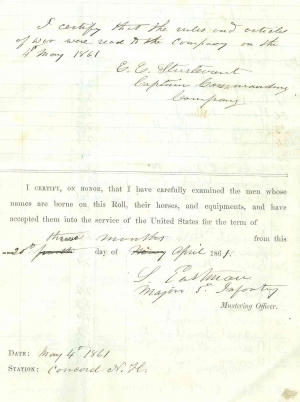 I certify that the rules and articles
of war were read to the company on the
4th May 1861
E. E. Sturtevant
Captain Commanding
Company
I CERTIFY, ON HONOR, that I have carefully examined the men whose
names are borne on this Roll, their horses, and equipments, and have
accepted them into the service of the United States for the term of
three months from this
20th day of April 1861.
S. Eastman
Major 5th Infantry
Mustering Officer.
DATE: May 4th 1861
STATION: Concord N.H.